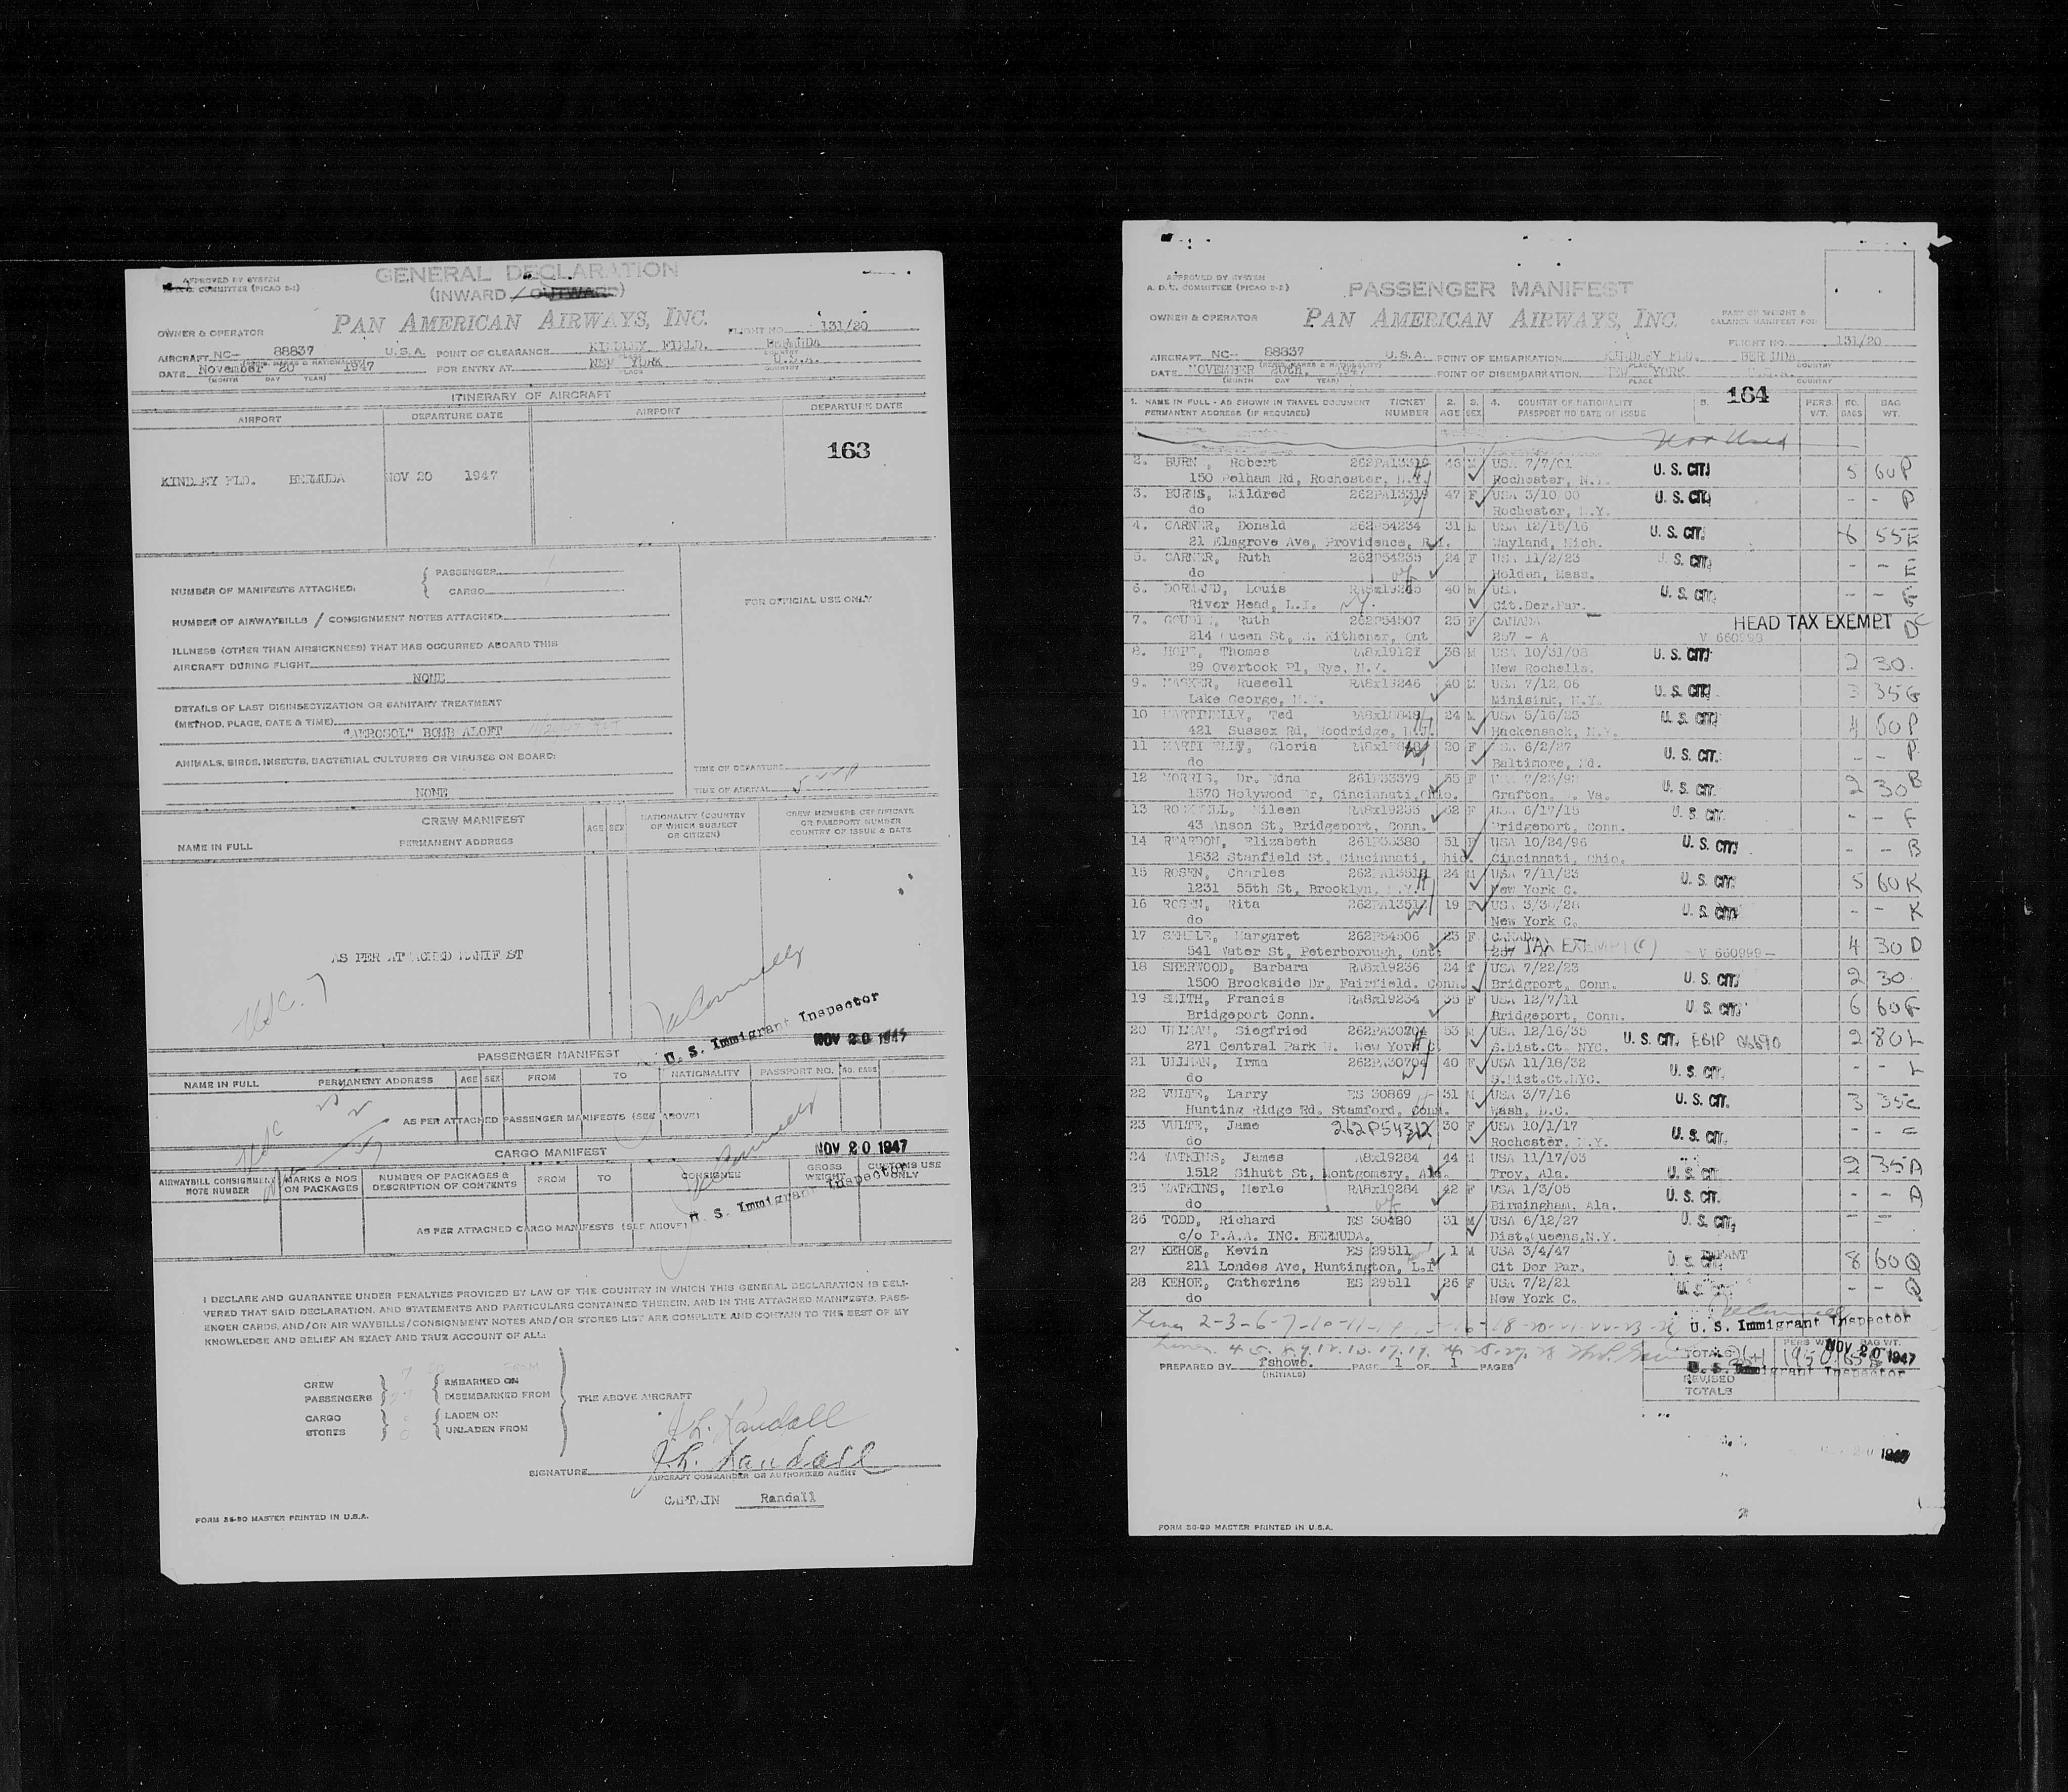 APPROVED BY SYSTEM
COMMITTEE (PICAO 2-1)
GENERAL DECLARATION
(INWARD / OUTWARD)
OWNER & OPERATOR
PAN AMERICAN AIRWAYS, INC.
FLIGHT NO. 131/20
AIRCRAFT NC- 88837 U.S.A. POINT OF CLEARANCE KINDLEY FIELD, BERMUDA
DATE November 20 1947 FOR ENTRY AT NEW YORK U.S.A.
(MONTH DAY YEAR) PLACE COUNTRY
ITINERARY OF AIRCRAFT
AIRPORT DEPARTURE DATE AIRPORT DEPARTURE DATE
163
KINDLEY FLD. BERMUDA NOV 20 1947
NUMBER OF MANIFESTS ATTACHED: PASSENGER
CARGO
FOR OFFICIAL USE ONLY
NUMBER OF AIRWAYBILLS / CONSIGNMENT NOTES ATTACHED:
ILLNESS (OTHER THAN AIRSICKNESS) THAT HAS OCCURRED ABOARD THIS
AIRCRAFT DURING FLIGHT
NONE
DETAILS OF LAST DISINSECTIZATION OR SANITARY TREATMENT
(METHOD, PLACE, DATE & TIME)
"AEROSOL" BOMB ALOFT
ANIMALS, BIRDS, INSECTS, BACTERIAL CULTURES OR VIRUSES ON BOARD:
TIME OF DEPARTURE
NONE
TIME OF ARRIVAL
CREW MANIFEST
NAME IN FULL PERMANENT ADDRESS AGE SEX NATIONALITY (COUNTRY OF WHICH SUBJECT OR CITIZEN) CREW MEMBERS CERTIFICATE OR PASSPORT NUMBER COUNTRY OF ISSUE & DATE
AS PER ATTACHED MANIFEST
U. S. Immigrant Inspector
NOV 20 1947
PASSENGER MANIFEST
NAME IN FULL PERMANENT ADDRESS AGE SEX FROM TO NATIONALITY PASSPORT NO. NO. BAGS
AS PER ATTACHED PASSENGER MANIFESTS (SEE ABOVE)
NOV 20 1947
CARGO MANIFEST
AIRWAYBILL CONSIGNMENT NOTE NUMBER MARKS & NOS ON PACKAGES NUMBER OF PACKAGES & DESCRIPTION OF CONTENTS FROM TO CONSIGNEE GROSS WEIGHT CUSTOMS USE ONLY
U. S. Immigrant Inspector
AS PER ATTACHED CARGO MANIFESTS (SEE ABOVE)
I DECLARE AND GUARANTEE UNDER PENALTIES PROVIDED BY LAW OF THE COUNTRY IN WHICH THIS GENERAL DECLARATION IS DELI-
VERED THAT SAID DECLARATION, AND STATEMENTS AND PARTICULARS CONTAINED THEREIN, AND IN THE ATTACHED MANIFESTS, PASS-
ENGER CARDS, AND/OR AIR WAYBILLS/CONSIGNMENT NOTES AND/OR STORES LIST ARE COMPLETE AND CONTAIN TO THE BEST OF MY
KNOWLEDGE AND BELIEF AN EXACT AND TRUE ACCOUNT OF ALL:
CREW EMBARKED ON
PASSENGERS DISEMBARKED FROM THE ABOVE AIRCRAFT
CARGO LADEN ON
STORES UNLADEN FROM
J.L. Randall
SIGNATURE J.L. Randall
AIRCRAFT COMMANDER OR AUTHORIZED AGENT
CAPTAIN Randall
FORM 36-90 MASTER PRINTED IN U.S.A.
APPROVED BY SYSTEM
COMMITTEE (PICAO 2-2)
PASSENGER MANIFEST
OWNER & OPERATOR PAN AMERICAN AIRWAYS, INC.
PART OF WEIGHT &
BALANCE MANIFEST FOR
FLIGHT NO. 131/20
AIRCRAFT NC- 88837 U.S.A. POINT OF EMBARKATION KINDLEY FLD. BERMUDA
DATE NOVEMBER 20th. 1947 POINT OF DISEMBARKATION NEW YORK U.S.A.
(MONTH DAY YEAR) PLACE COUNTRY
164
1. NAME IN FULL - AS SHOWN IN TRAVEL DOCUMENT TICKET NUMBER 2. AGE 3. SEX 4. COUNTRY OF NATIONALITY 5. PERS. WT. NO. BAGS BAG WT.
PERMANENT ADDRESS (IF REQUIRED) PASSPORT NO DATE OF ISSUE
Not Used
2. BURN, Robert 46 M USA 7/7/01 U. S. CIT. 5 60 P
150 Pelham Rd, Rochester, N.Y. Rochester, N.Y.
3. BURNS, Mildred 262PA13319 47 F USA 3/10/00 U. S. CIT. - - P
do Rochester, N.Y.
4. CARNER, Donald 262P54234 31 M USA 12/15/16 U. S. CIT. 6 55 E
21 Elmgrove Ave, Providence, R.I. Wayland, Mich.
5. CARNER, Ruth 262P54235 24 F USA 11/2/23 U. S. CIT. - - E
do Holden, Mass.
6. Louis 40 M USA U. S. CIT. - -
River Head, L.I. Cit.Der.Par.
7. Ruth 262P54507 25 F CANADA HEAD TAX EXEMPT
214 Queen St, S. Kithener, Ont 257 - A V 660998
8. Thomas 38 M USA 10/31/08 U. S. CIT. 2 30
29 Overtook Pl, Rye, N.Y. New Rochelle.
9. Russell RA8x19246 40 M USA 7/12/06 U. S. CIT. 3 35 G
Lake George, N.Y. Minisink, N.Y.
10 Ted 24 M USA 5/16/23 U. S. CIT. 4 60 P
421 Sussex Rd, Woodridge, N.J. Hackensack, N.Y.
11 Gloria 20 F USA 6/2/27 U. S. CIT. - - P
do Baltimore, Md.
12 MORRIS, Dr. Edna F U. S. CIT. 2 30 B
1570 Holywood Dr, Cincinnati, Ohio. Grafton, W. Va.
13 Eileen F USA 6/17/15 U. S. CIT. - - F
43 Anson St, Bridgeport, Conn. Bridgeport, Conn.
14 REARDON, Elizabeth 51 F USA 10/24/96 U. S. CIT. - - B
1832 Stanfield St, Cincinnati, Ohio. Cincinnati, Ohio.
15 ROSEN, Charles 24 M USA 7/11/23 U. S. CIT. 5 60 K
1231 55th St, Brooklyn, N.Y. New York C.
16 ROSEN, Rita 19 F USA 3/30/28 U. S. CIT. - - K
do New York C.
17 Margaret 262P54506 23 F CANADA TAX EXEMPT (C) 4 30 D
541 Water St, Peterborough, Ont. V 660999
18 SHERWOOD, Barbara RA8x19236 24 F USA 7/22/23 U. S. CIT. 2 30
1500 Brockside Dr, Fairfield. Conn. Bridgport, Conn.
19 SMITH, Francis RA8x19234 35 F USA 12/7/11 U. S. CIT. 6 60 F
Bridgeport Conn. Bridgeport, Conn.
20 ULLMAN, Siegfried 262PA30704 53 M USA 12/16/35 U. S. CIT. 2 80 L
271 Central Park W. New York C. S.Dist.Ct. NYC.
21 ULLMAN, Irma 262PA30704 40 F USA 11/18/32 U. S. CIT. - - L
do S.Dist.Ct.NYC.
22 VULTE, Larry ES 30869 31 M USA 3/7/16 U. S. CIT. 3 35 C
Hunting Ridge Rd. Stamford, Conn. Wash, D.C.
23 VULTE, Jame 262P54312 30 F USA 10/1/17 U. S. CIT. - -
do Rochester, N.Y.
24 WATKINS, James RA8x19284 44 M USA 11/17/03 U. S. CIT. 2 35 A
1512 Sihutt St, Montgomery, Ala. Troy, Ala.
25 WATKINS, Merle RA8x19284 42 F USA 1/3/05 U. S. CIT. - - A
do Birmingham, Ala.
26 TODD, Richard ES 30420 31 M USA 6/12/27 U. S. CIT. - -
c/o P.A.A. INC. BERMUDA. Dist.Queens,N.Y.
27 KEHOE, Kevin ES 29511 1 M USA 3/4/47 U. S. INFANT 8 60 Q
211 Londes Ave, Huntington, L.I. Cit Der Par.
28 KEHOE, Catherine ES 29511 26 F USA 7/2/21 U. S. CIT. - - Q
do New York C.
Lines 2-3-6-7-10-11-
U. S. Immigrant Inspector
PREPARED BY fshowe. PAGE 1 OF 1 PAGES
(INITIALS)
TOTALS PERS WT. BAG WT.
NOV 20 1947
U. S. Immigrant Inspector
REVISED
TOTALS
20 1947
FORM 36-89 MASTER PRINTED IN U.S.A.